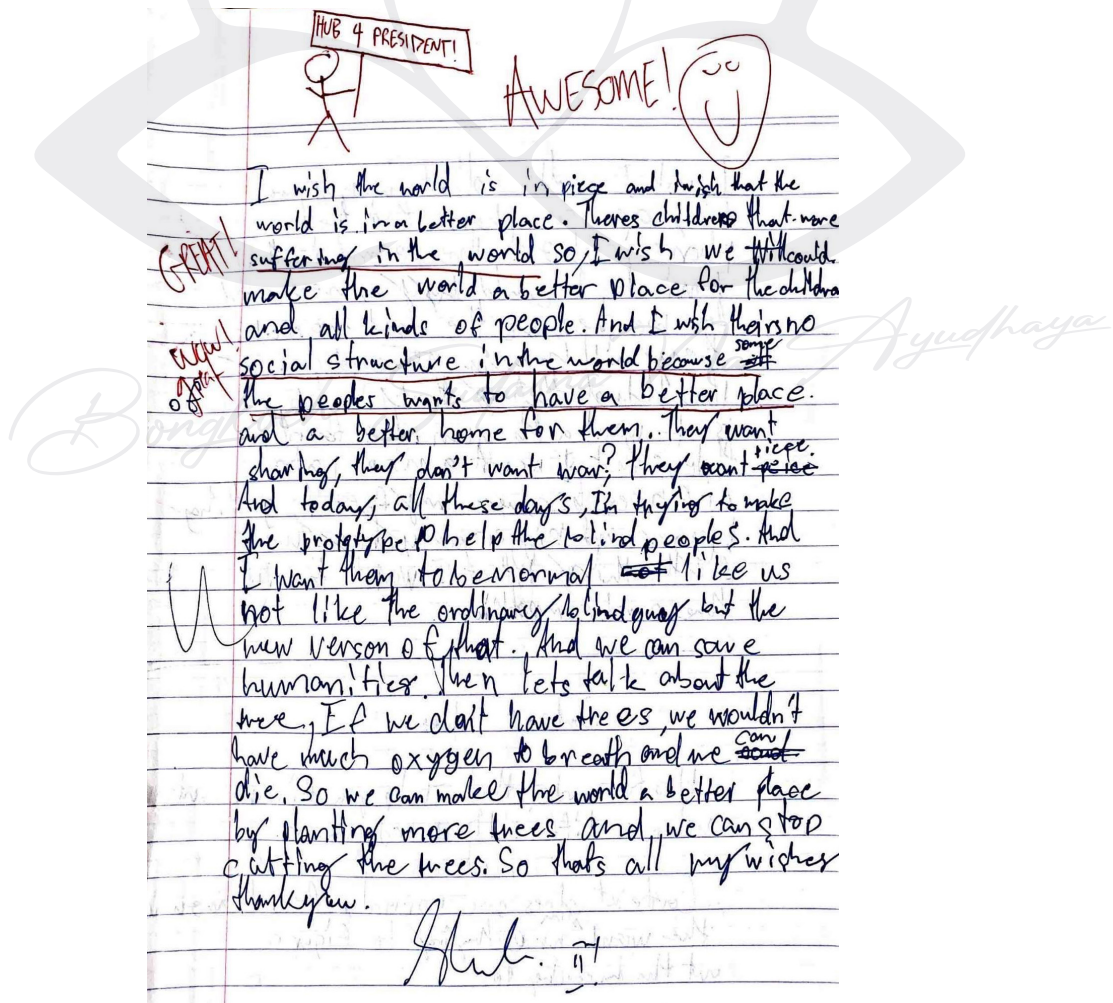 HUB 4 PRESIDENT!
AWESOME!
I wish the world is in piece and I wish that the
world is in a better place. Theres children that were
GREAT!
suffering in the world so, I wish we could
make the world a better place for the children
and all kinds of people. And I wish theirs no
wow!
social structure in the world because some
great
the peoples wants to have a better place.
and a better home for them. They want
sharing, they don't want war? they want piece.
And today, all these days, I'm trying to make
the prototype to help the blind peoples. And
I want them to be normal like us
not like the ordinary blind guy but the
new verson of that. And we can save
humanities. Then lets talk about the
tree, If we don't have trees, we wouldn't
have much oxygen to breath and we can
die. So we can make the world a better place
by planting more trees and we can stop
cutting the trees. So thats all my wishes
thankyou.
Ayudhaya